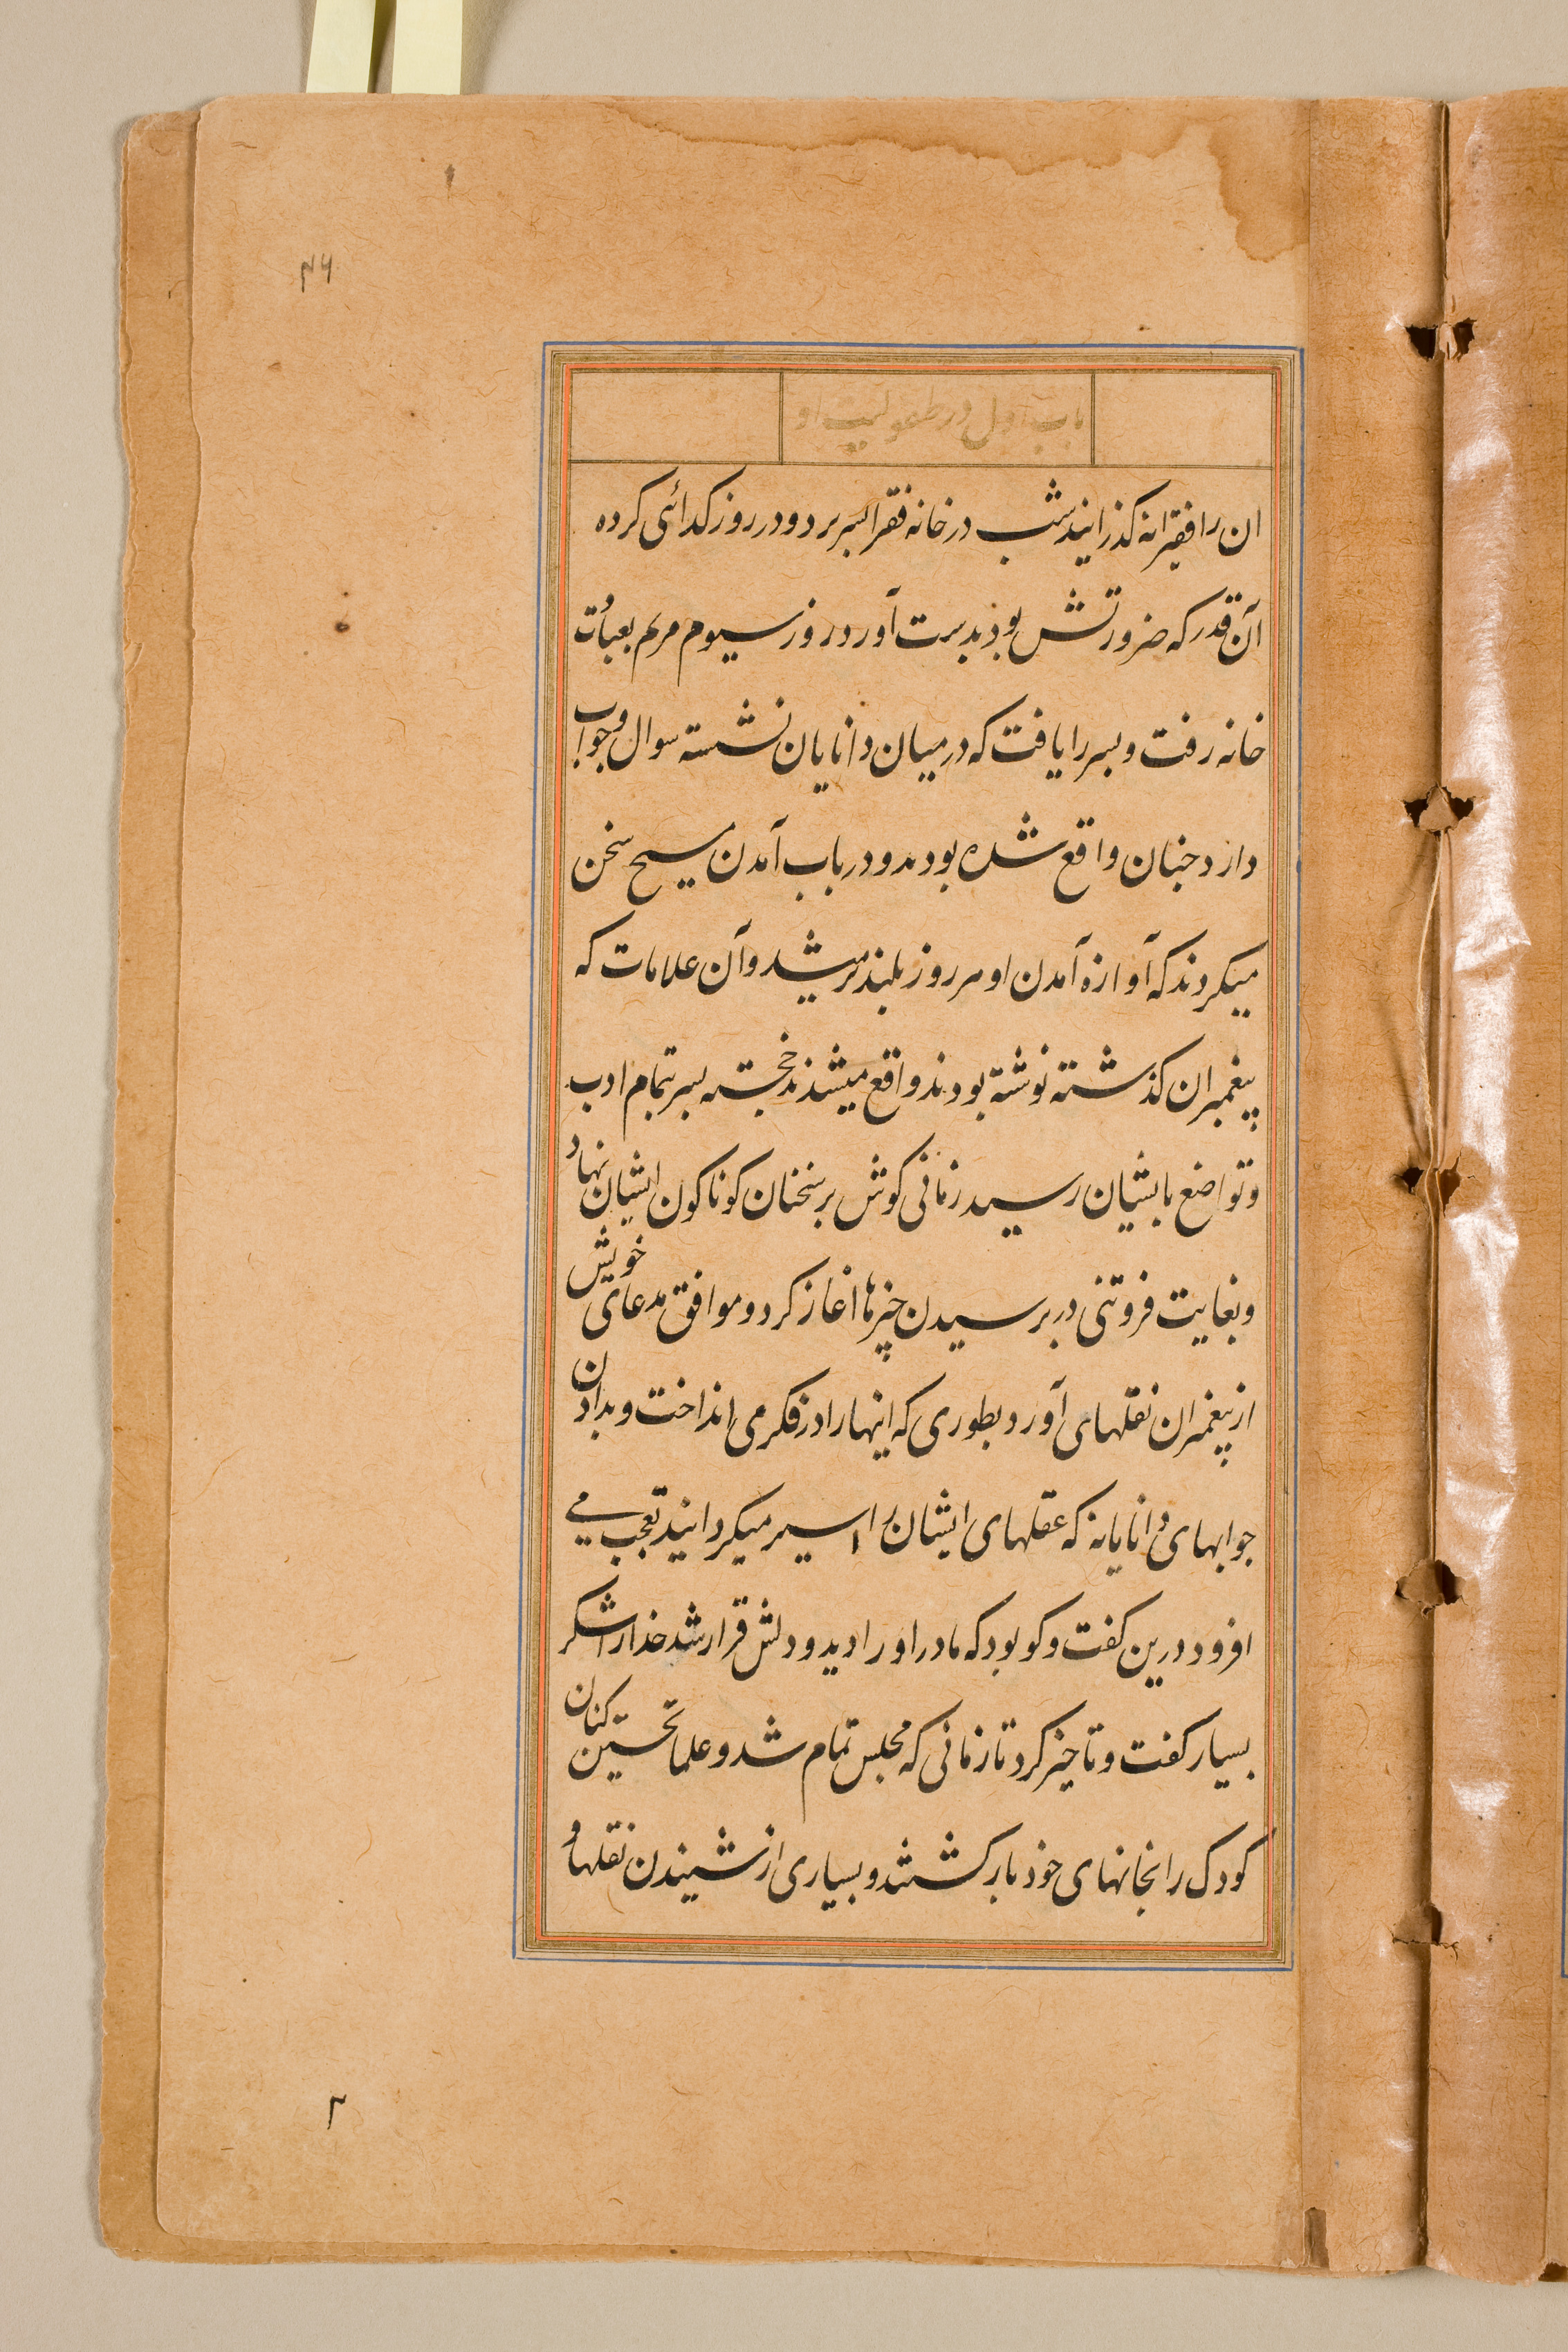 ۴۶
باب اول در طفولیت او
ان را فقیرانه کذرانید شب در خانه فقرا بسر برد و در روز کدائی کرده
آن قدر که ضرورتش بود بدست آورد روز سیوم مریم بعبادت
خانه رفت و پسر را یافت که در میان دانایان نشسته سوال و جواب
دارد چنان واقع شده بود و در باب آمدن مسیح سخن
میکردند که آوازه آمدن او هر روز بلندتر میشد و آن علامات که
پیغمبران کذشته نوشته بودند واقع میشدند خجسته پسر بتمام ادب
و تواضع بایشان رسید زمانی کوش بر سخنان کوناکون ایشان نهاد
و بغایت فروتنی در پرسیدن چیزها اغاز کرد و موافق مدعای خویش
از پیغمبران نقلهای آورد بطوری که اینها را در فکر می انداخت و بدادن
جوابهای دانایانه که عقلهای ایشان را اسیر میکردانید تعجب می
افزود درین کفت و کو بود که مادر او را دید و دلش قرار شد خدا را شکر
بسیار کفت و تاخیر کرد تا زمانی که مجلس تمام شد و علما تحسین کنان
کودک را بخانهای خود باز کشتند و بسیاری از شنیدن نقلها و